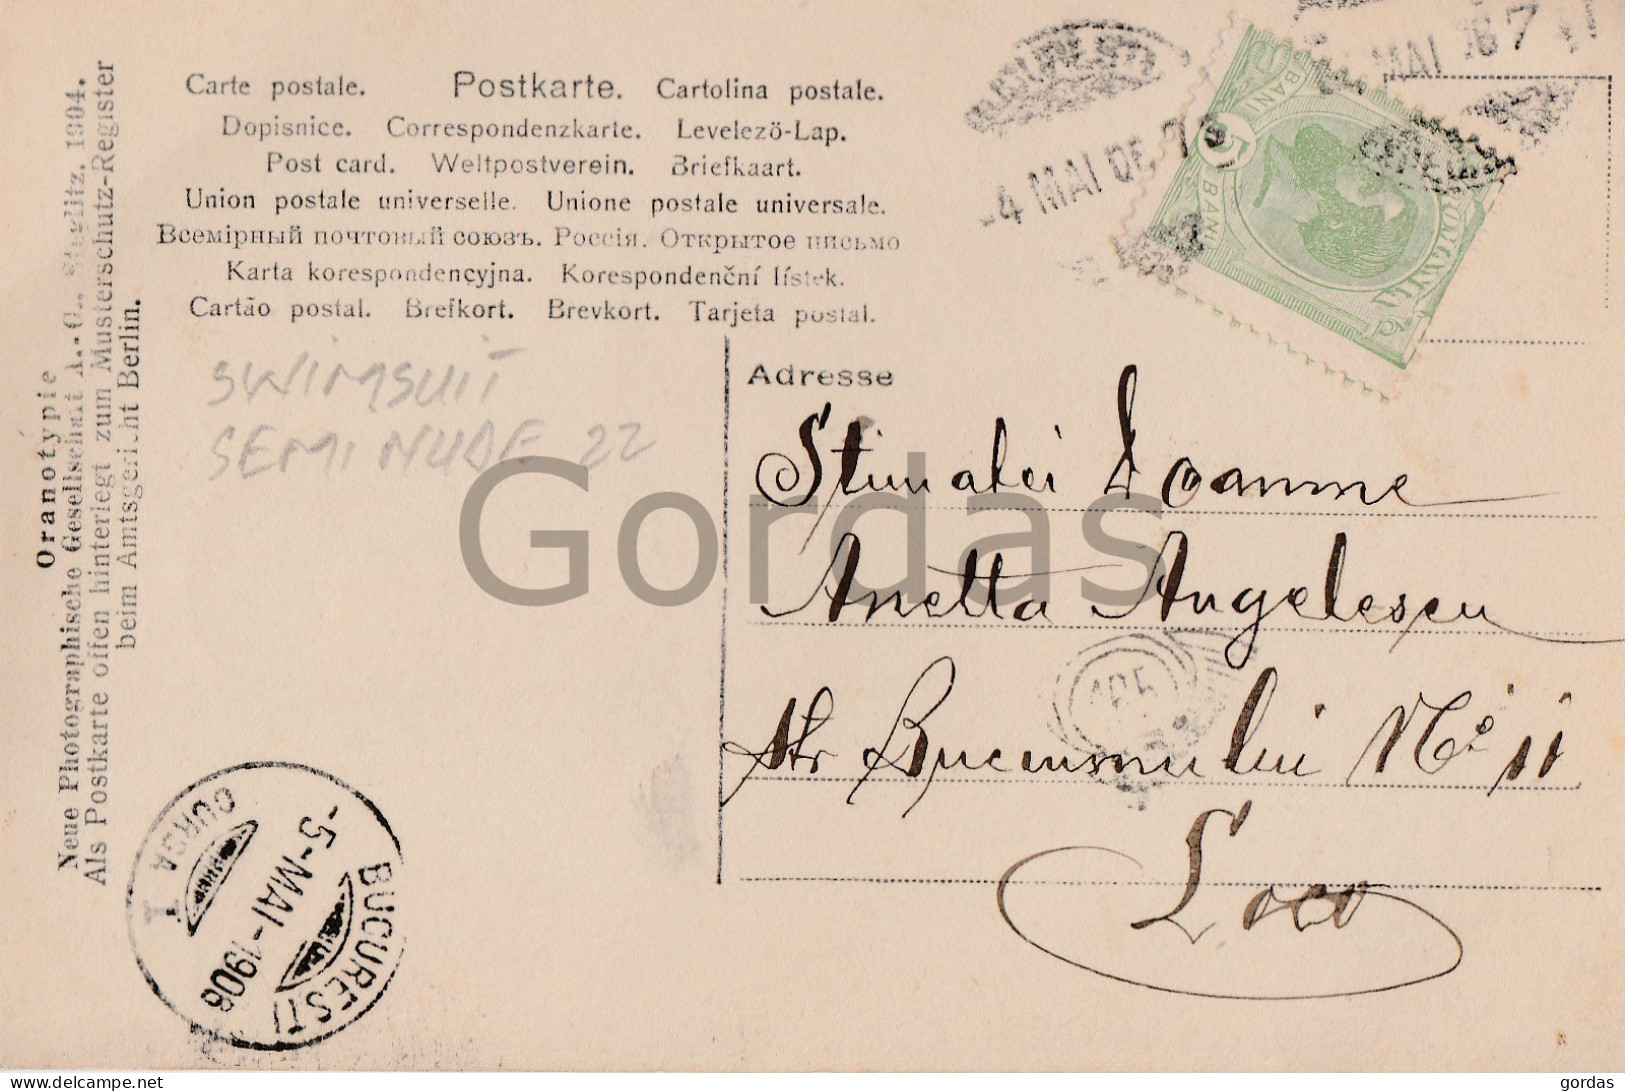 Carte postale. Postkarte. Cartolina postale.
Dopisnice. Correspondenzkarte. Levelező-Lap.
Post card. Weltpostverein. Briefkaart.
Union postale universelle. Unione postale universale.
Всемірный почтовый союзъ. Россія. Открытое письмо
Karta korespondencyjna. Korespondenční lístek.
Cartão postal. Brefkort. Brevkort. Tarjeta postal.
Oranotypie
Neue Photographische Gesellschaft A.-G., Steglitz, 1904.
Als Postkarte offen hinterlegt zum Musterschutz-Register
beim Amtsgericht Berlin.
SWIMSUIT
SEMI NUDE 22
-4 MAI 06 7
MAI 06 7
BANI 5 BANI
ROMANIA
Adresse
Stimatei Doamne
Anetta Angelescu
str Bucumului No 11
Loco
105
BUCURESTI
-5-MAI-1906
CURSA I
Gordas
gordas